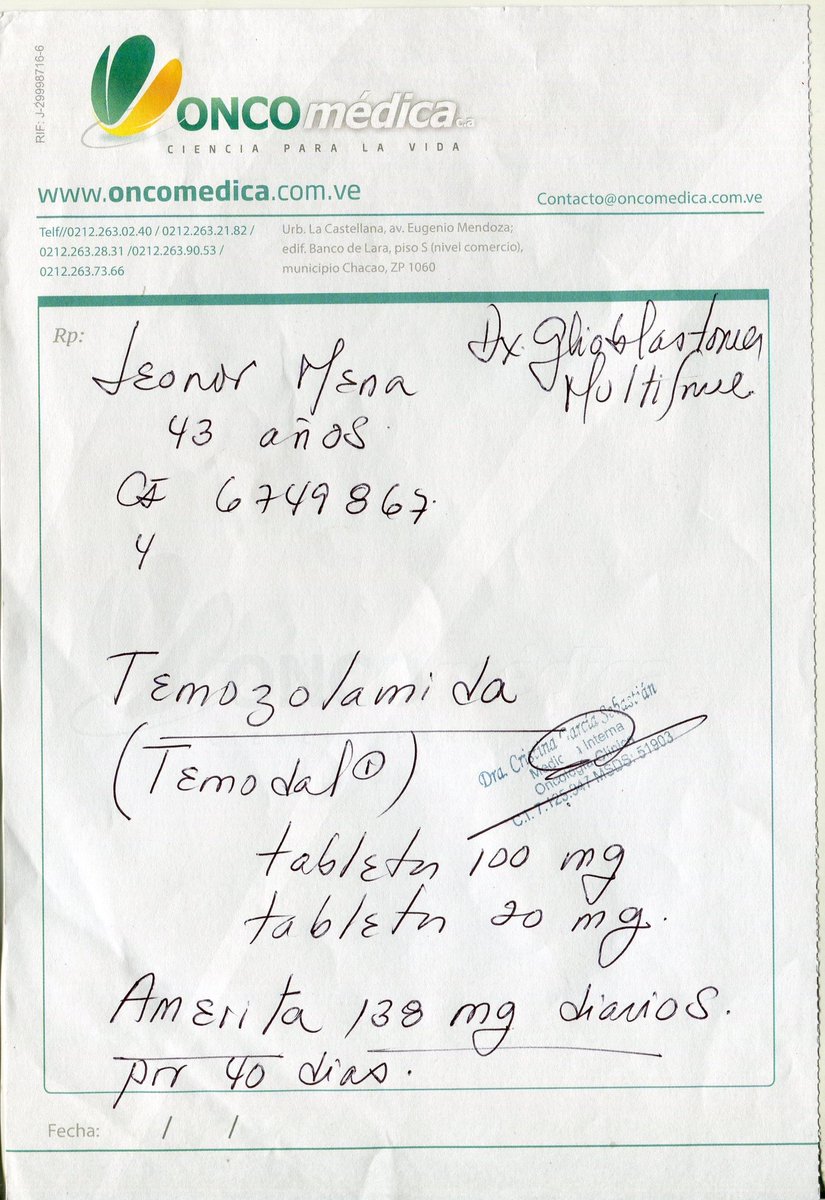 RIF: J-29998716-6
ONCOmédica c.a
CIENCIA PARA LA VIDA
www.oncomedica.com.ve
Contacto@oncomedica.com.ve
Telf//0212.263.02.40 / 0212.263.21.82 /
0212.263.28.31 /0212.263.90.53 /
0212.263.73.66
Urb. La Castellana, av. Eugenio Mendoza;
edif. Banco de Lara, piso S (nivel comercio),
municipio Chacao, ZP 1060
Rp:
Leonor Mena
Dx. Glioblastoma
Multiforme
43 años
CI 6749867
Temozolamida
(Temodal®)
Dra. Cristina García Sebastián
Interna
Oncología Clínica
C.I. 7.125.947 MSDS: 51903
tabletas 100 mg
tabletas 20 mg.
Amerita 138 mg diarios.
por 40 dias.
Fecha: / /